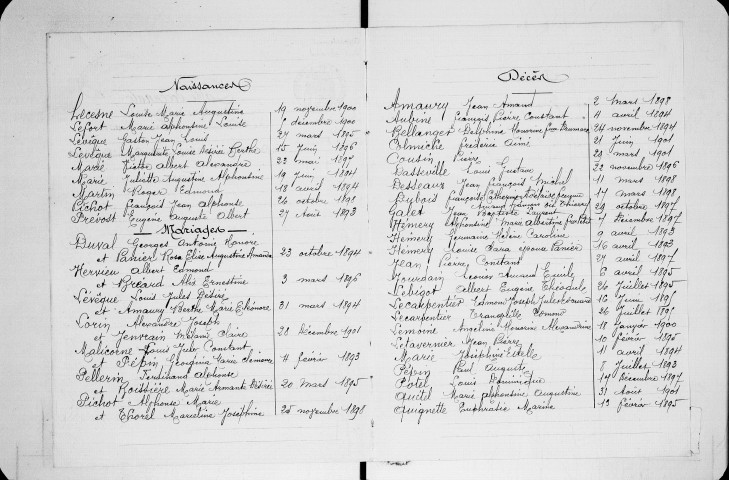 Naissances
Lecesne Louise Marie Augustine 19 novembre 1900
Lefort Marie Alphonsine Louise décembre 1900
Levêque Gaston Jean Louis 27 mars 1895
Levêque Marguerite Louise Désirée Berthe 15 Juin 1896
Marie Albert Alexandre 22 mai 1897
Marie Juliette Augustine Alphonsine 19 Juin 1894
Martin Roger Edmond 18 avril 1894
Pichot François Jean Alphonse 26 octobre 1898
Prévost Eugène Auguste Albert 27 Août 1893
Mariages
Duval Georges Antoine Honoré
et Panier Rosa Elise Augustine Amanda 23 octobre 1894
Hervieu Albert Edmond
et Bréard Ernestine 3 mars 1896
Levêque Louis Jules Désiré
et Amaury Berthe Marie Eléonore 31 mars 1894
Lorin Alexandre Joseph
et Jentrain Mélanie Claire 28 Décembre 1901
Malicorne Louis Jules Constant
et Pépin Georgina Marie 4 février 1893
Pellerin Ferdinand Alphonse
et Marie Armante Désirée 20 mars 1895
Pichot Alphonse Marie
et Thorel Marceline Joséphine 25 novembre
Décès
Amaury Jean Amand 2 mars 1898
Aubine François Pierre Constant 4 avril 1894
Bellanger Delphine Honorine 24 novembre 1894
Colmiche Frédéric Aimé 21 Juin 1901
Cousin Pierre 23 mars 1901
Dasteville Louis Gustave 22 novembre 1896
Desseaux Jean François Michel mars 1898
Dubois Françoise 17 mars 1898
Galet Jean Baptiste Laurent octobre 1897
Hémery Alphonsine Marie Albertine 7 Décembre 1897
Hémery Germaine Hélène Caroline 9 avril 1893
Hémery Louise Clara épouse Panier 16 avril 1893
Jean Pierre Constant 27 avril 1897
Jourdain Léonor Armand Emile 6 avril 1895
Lebigot Albert Eugène Théodule 26 Juillet 1895
Lecarpentier Edmond Joseph Jules Edouard 16 Juin 1896
Lecarpentier Tranquille Edmond 26 Juillet
Lemoine Angélina Honorine Alexandrine 18 Janvier 1900
Letavernier Jean Pierre 10 février 1895
Marie Joséphine Estelle 11 avril 1894
Pépin Paul Auguste Juillet 1893
Potel Louis Dominique Décembre 1897
Quétel Marie Alphonsine Augustine 31 Août 1901
Quignette Euphrasie Marine 13 février 1895